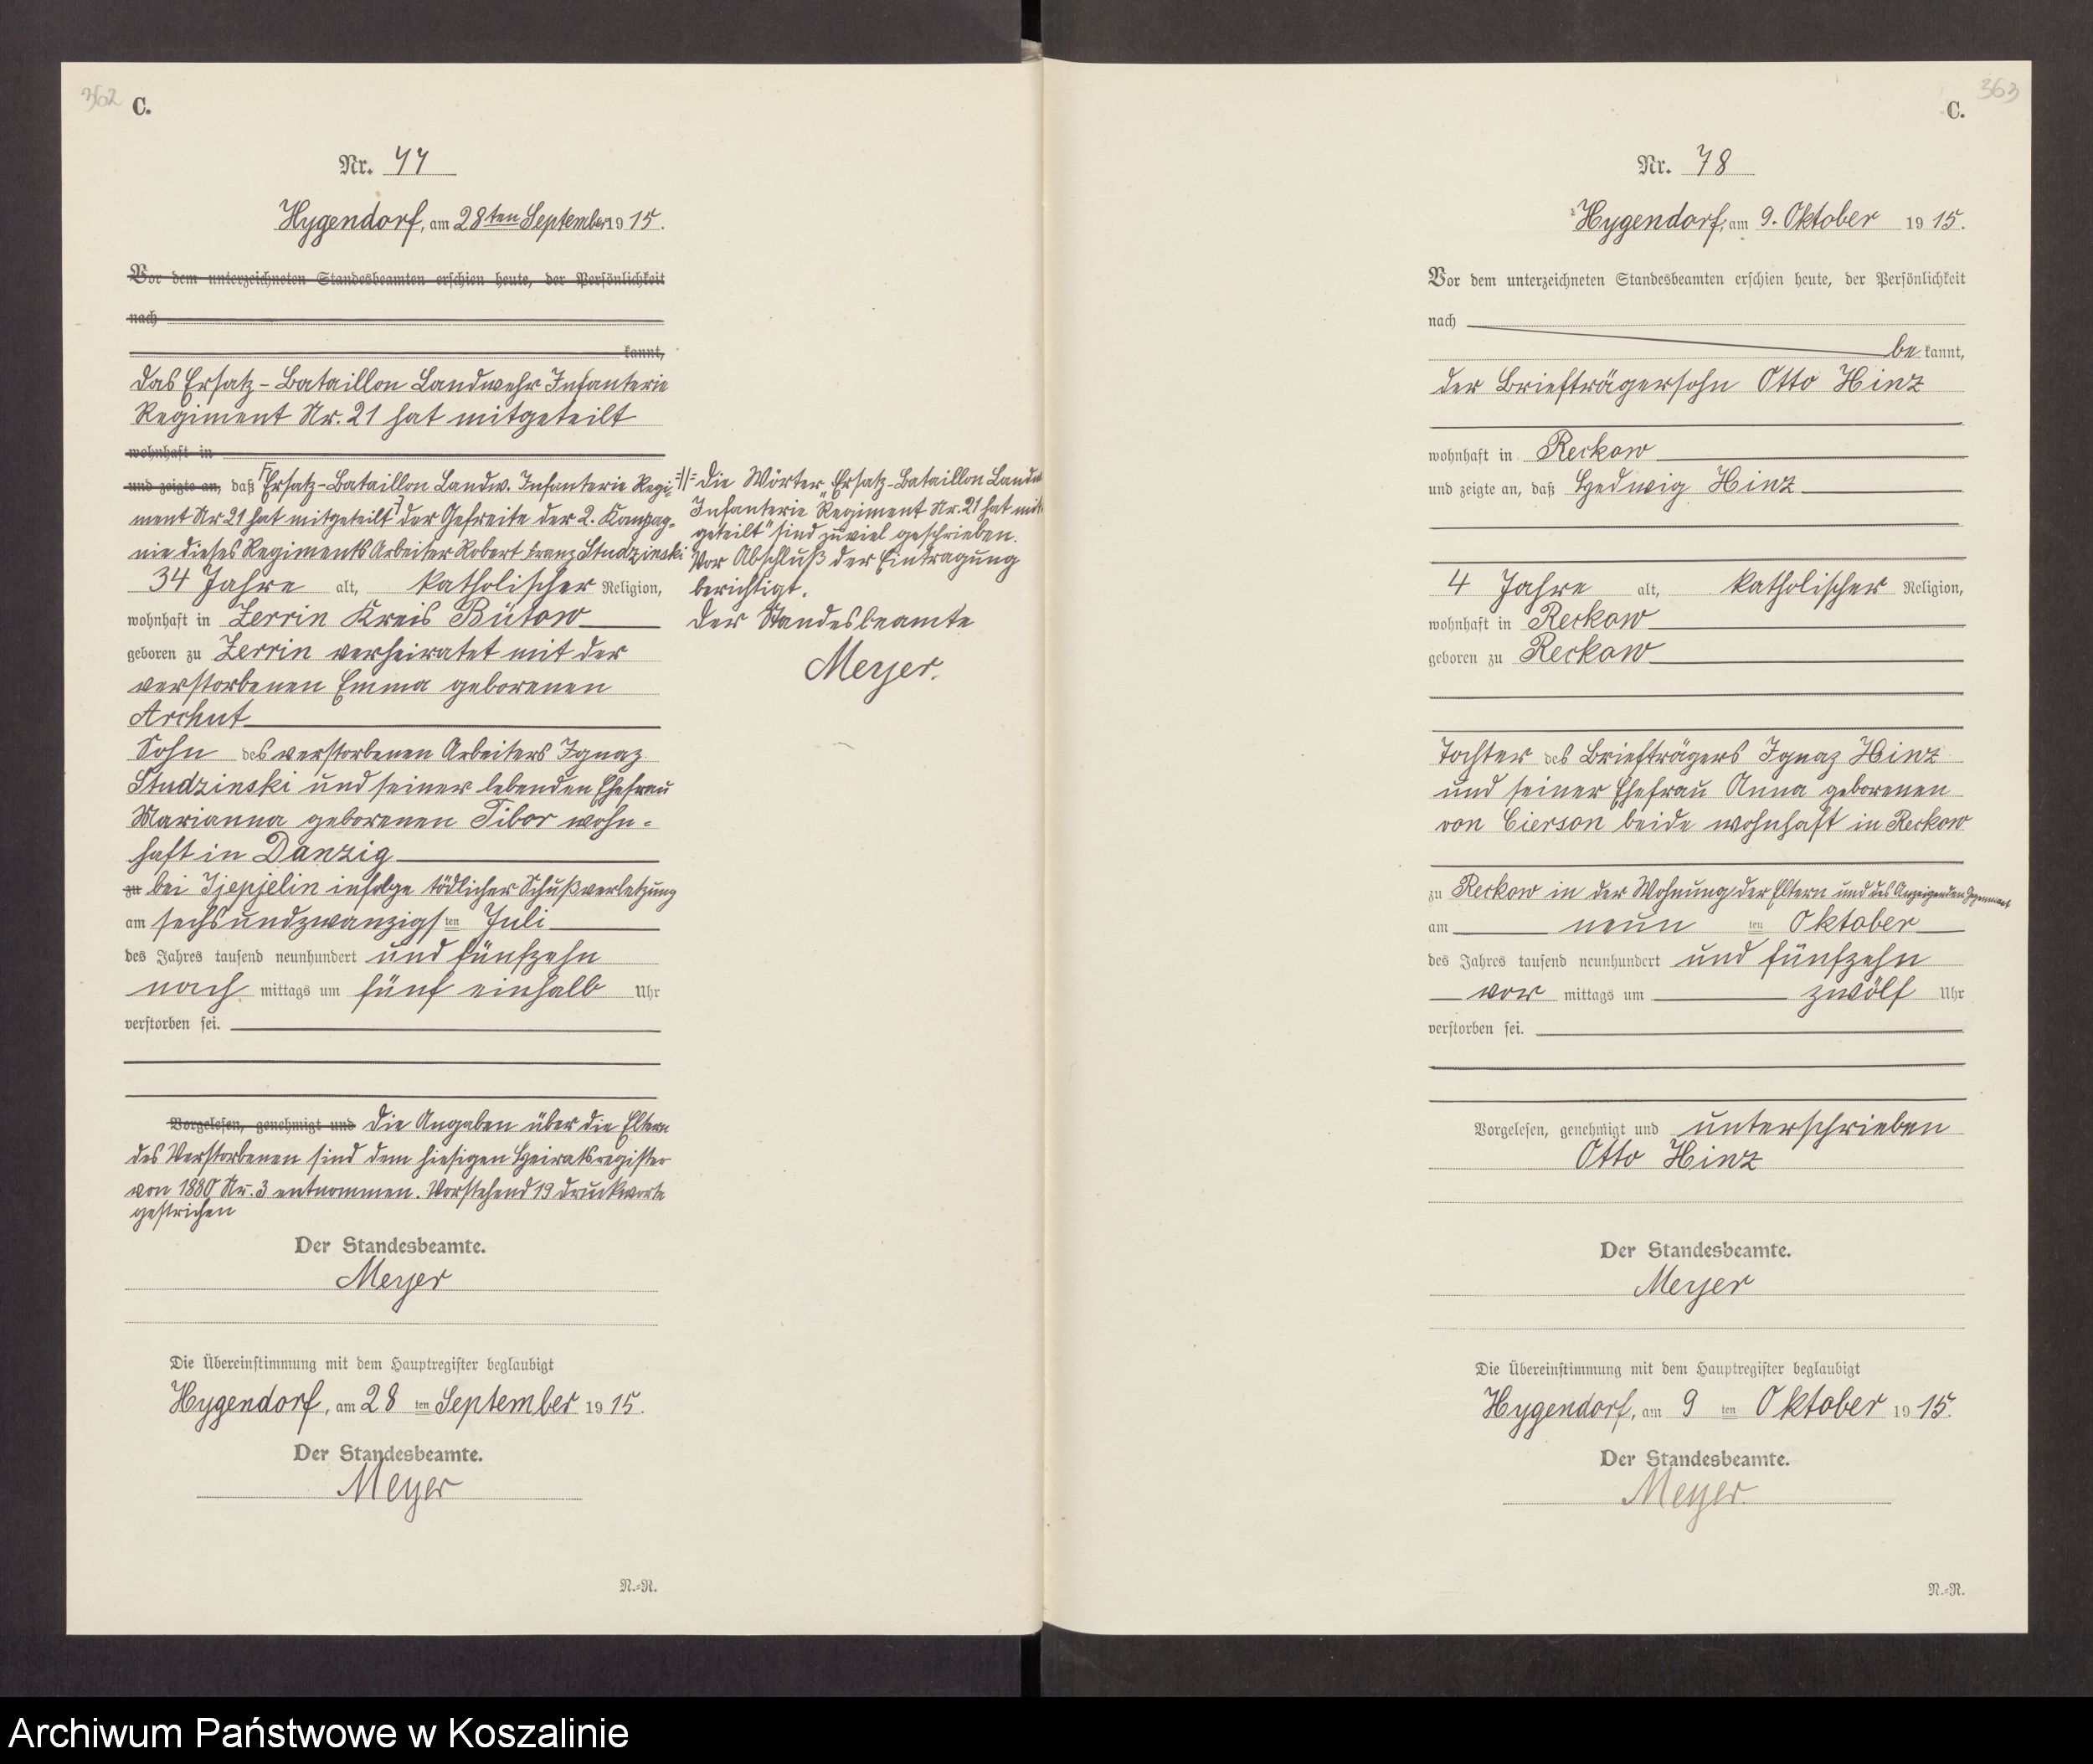 362
C.
Nr. 77
Hygendorf, am 28ten September 1915.
Vor dem unterzeichneten Standesbeamten erschien heute, der Persönlichkeit
nach
kannt,
das Ersatz-Bataillon Landwehr Infanterie
Regiment Nr. 21 hat mitgeteilt
wohnhaft in
und zeigte an, daß Ersatz-Bataillon Landw. Infanterie Regi-
ment Nr 21 hat mitgeteilt der Gefreite der 2. Kompag-
nie dieses Regiments Arbeiter Robert Franz Studzinski
34 Jahre alt, katholischer Religion,
wohnhaft in Zerrin Kreis Bütow
geboren zu Zerrin verheiratet mit der
verstorbenen Emma geborenen
Archut
Sohn des verstorbenen Arbeiters Ignaz
Studzinski und seiner lebenden Ehefrau
Marianna geborenen Tibor wohn-
haft in Danzig
zu bei infolge tödlicher Schußverletzung
am sechsundzwanzigsten Juli
des Jahres tausend neunhundert und fünfzehn
nach mittags um fünf einhalb Uhr
verstorben sei.
Vorgelesen, genehmigt und Die Angaben über die Eltern
des Verstorbenen sind dem hiesigen Heiratsregister
von 1880 Nr. 3 entnommen. Vorstehend 19 Druckworte
gestrichen
Der Standesbeamte.
Meyer
Die Übereinstimmung mit dem Hauptregister beglaubigt
Hygendorf, am 28 ten September 1915.
Der Standesbeamte.
Meyer
N.-R.
-//- Die Wörter „Ersatz-Bataillon Landw
Infanterie Regiment Nr. 21 hat mit-
geteilt" sind zuviel geschrieben.
Vor Abschluß der Eintragung
berichtigt.
Der Standesbeamte
Meyer.
363
C.
Nr. 78
Hygendorf, am 9. Oktober 1915.
Vor dem unterzeichneten Standesbeamten erschien heute, der Persönlichkeit
nach
be kannt,
der Briefträgersohn Otto Hinz
wohnhaft in Reckow
und zeigte an, daß Hedwig Hinz
4 Jahre alt, katholischer Religion,
wohnhaft in Reckow
geboren zu Reckow
Tochter des Briefträgers Ignaz Hinz
und seiner Ehefrau Anna geborenen
von Cierson beide wohnhaft in Reckow
zu Reckow in der Wohnung der Eltern und des Anzeigenden Gegenwart
am neun ten Oktober
des Jahres tausend neunhundert und fünfzehn
vor mittags um zwölf Uhr
verstorben sei.
Vorgelesen, genehmigt und unterschrieben
Otto Hinz
Der Standesbeamte.
Meyer
Die Übereinstimmung mit dem Hauptregister beglaubigt
Hygendorf, am 9 ten Oktober 1915.
Der Standesbeamte.
Meyer.
N.-R.
Archiwum Państwowe w Koszalinie